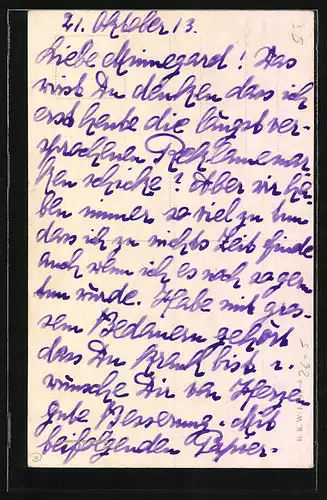 21. Oktober 13.
Liebe Minnegard! Was
wirst Du denken dass ich
erst heute die längst ver-
sprochenen Reklamemar-
ken schicke? Aber wir ha-
ben immer so viel zu tun
dass ich zu nichts Zeit finde
auch wenn ich es noch so gern
tun würde. Habe mit gros-
sem Bedauern gehört
dass Du krank bist u.
wünsche Dir von Herzen
gute Besserung. Mit
beifolgenden Papier-